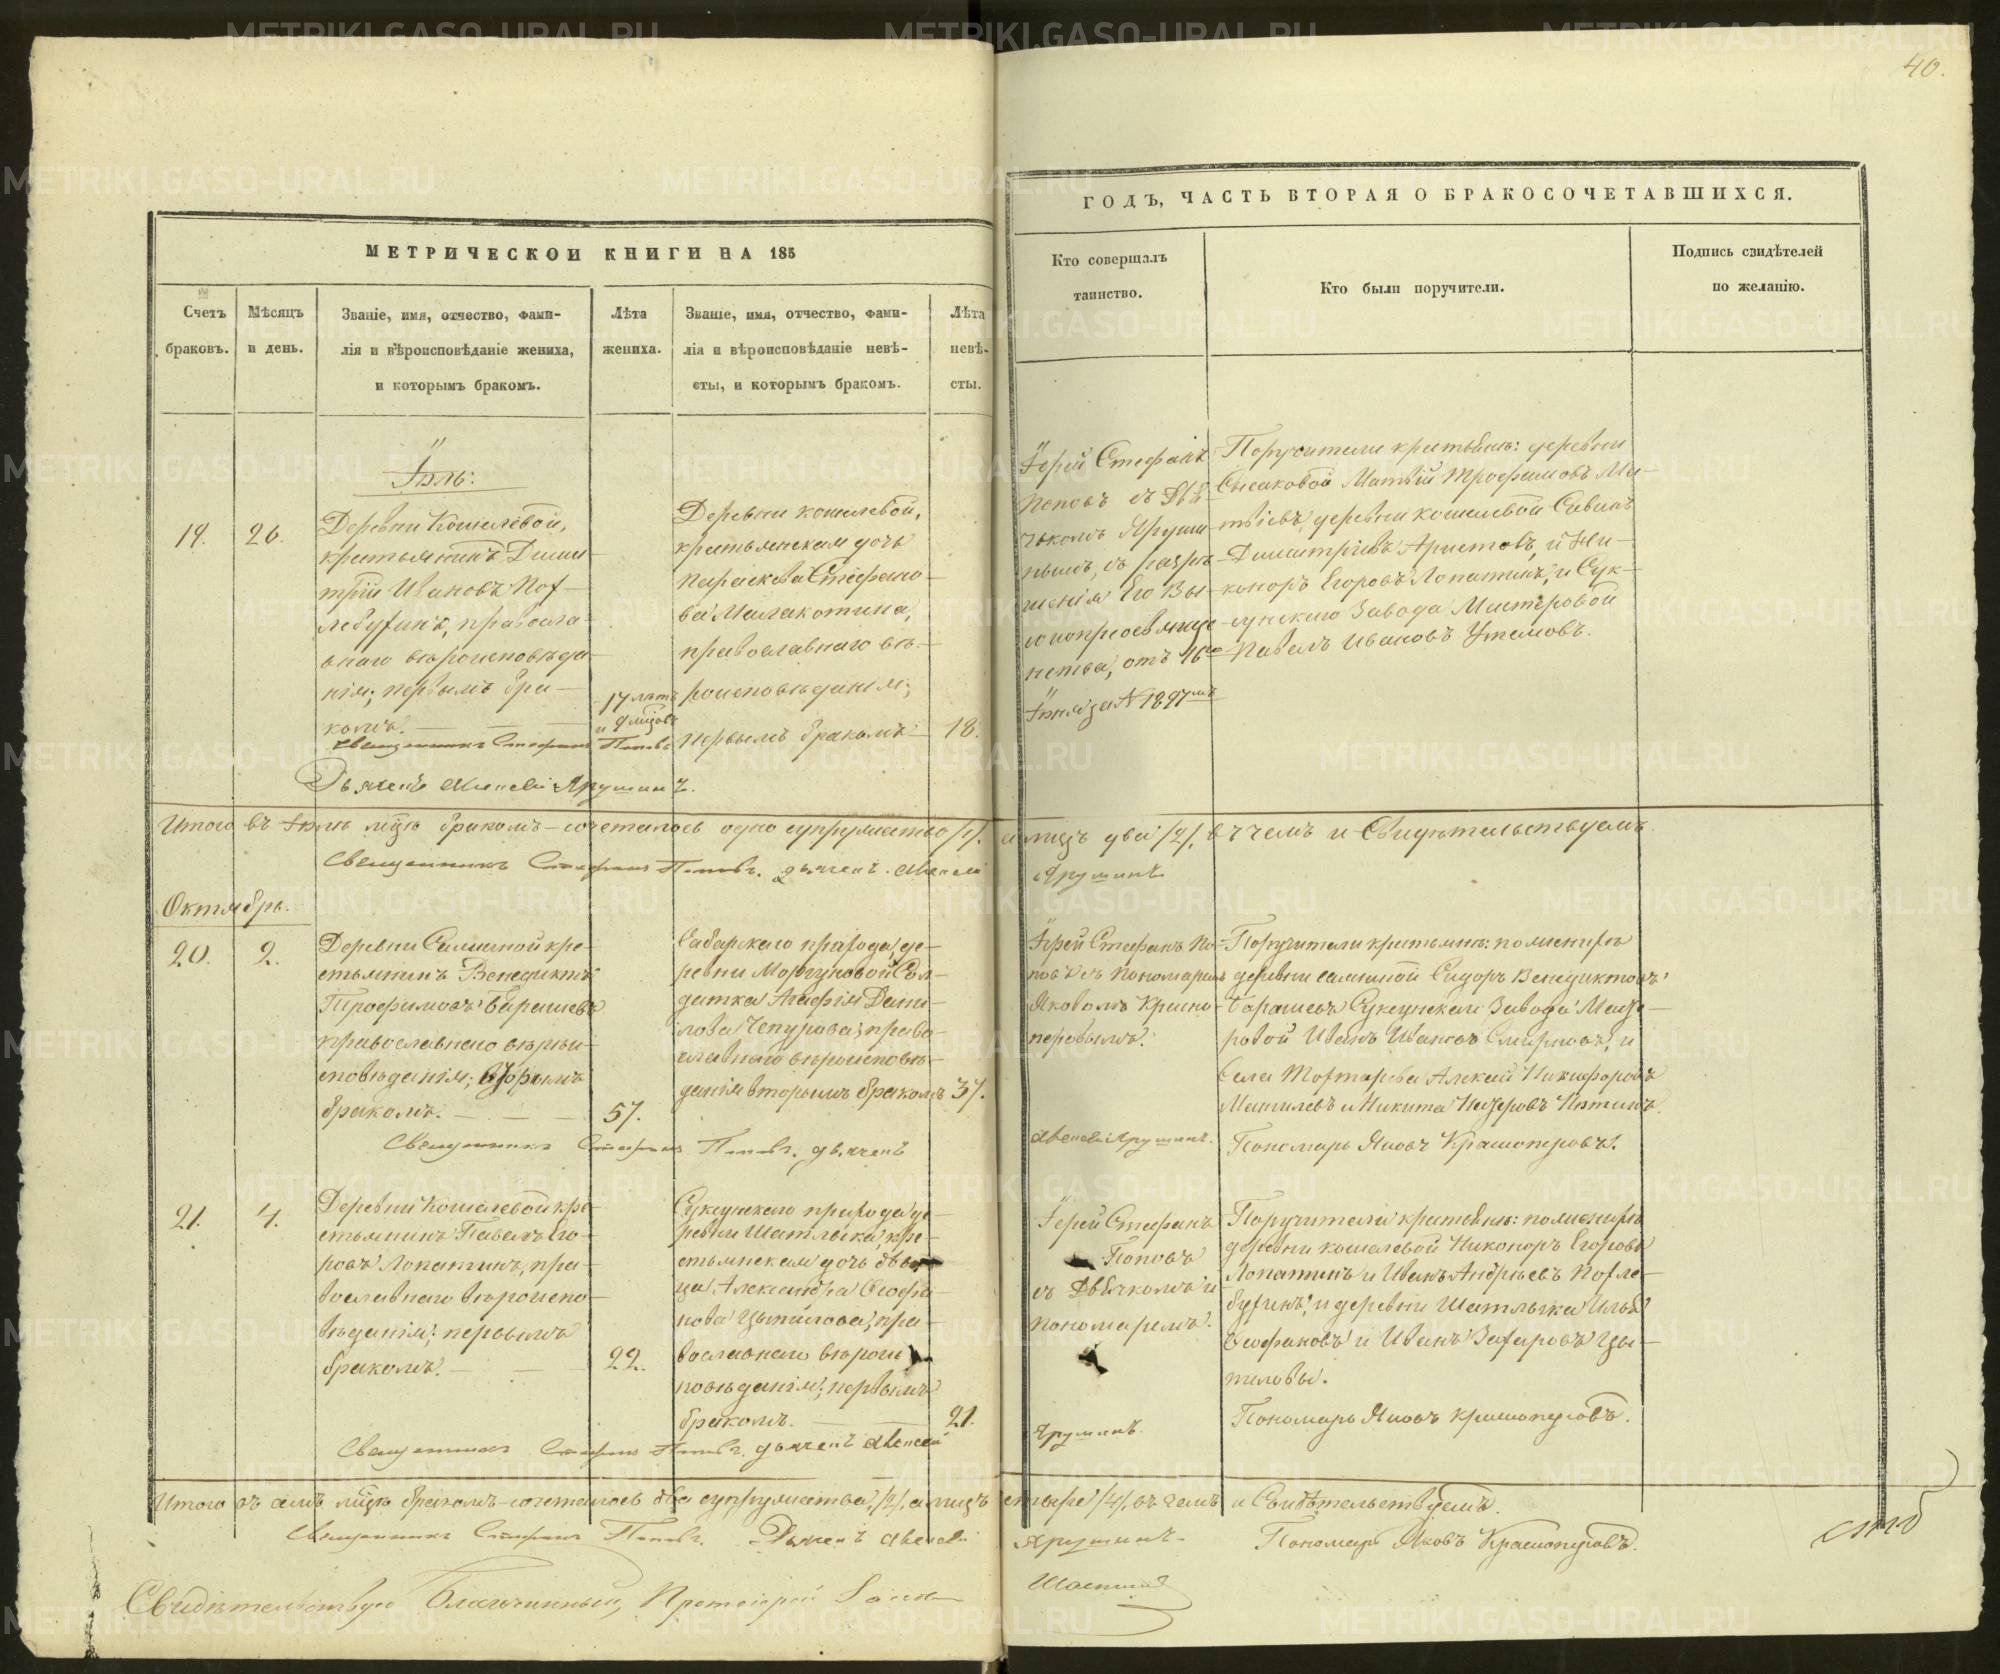 40.
МЕТРИЧЕСКОИ КНИГИ НА 185
ГОДЪ, ЧАСТЬ ВТОРАЯ О БРАКОСОЧЕТАВШИХСЯ.
Счетъ
браковъ.
Мѣсяцъ
и день.
Званіе, имя, отчество, фами-
лія и вѣроисповѣданіе жениха,
и которымъ бракомъ.
Лѣта
жениха.
Званіе, имя, отчество, фами-
лія и вѣроисповѣданіе невѣ-
сты, и которымъ бракомъ.
Лѣта
невѣ-
сты.
Кто совершалъ
таинство.
Кто были поручители.
Подпись свидѣтелей
по желанію.
Іюль:
19.
26.
Деревни Кошелевой,
крестьянинъ Дими-
трій Ивановъ Пог-
православ-
наго вѣроисповѣда-
нія; первымъ бра-
комъ.
17 лѣтъ
и 9 мѣсяцовъ
Деревни кошелевой,
крестьянская дочь
Параскева Стефано-
ва Малакотина,
православнаго вѣ-
роисповѣданія;
первымъ бракомъ
18.
Іерей Стефанъ
Поповъ съ Дья-
чкомъ Яруши-
нымъ, съ разрѣ-
шенія Его Вы-
сокопреосвяще-
нства, отъ 16го
Іюня за № 1897мъ
Поручители крестьяне: деревни
Сысаковой Матвѣй Трофимовъ Ма-
твѣевъ, деревни кошелевой Савинъ
Димитріевъ Аристовъ, и Ни-
каноръ Егоровъ Лопатинъ, и Сук-
сунскаго Завода Мастеровой
Павелъ Ивановъ Утемовъ.
Священникъ Стефанъ Поповъ
Дьячекъ Алексѣй Ярушинъ.
Итого въ Іюлѣ мѣсяцѣ бракомъ сочеталось одно супружество /1/, а лицъ два /2/, въ чемъ и Свидѣтельствуемъ.
Священникъ Стефанъ Поповъ. дьячекъ Алексѣй Ярушинъ
Октябрь.
20.
2.
Деревни Сали­ной кре-
стьянинъ Венедиктъ
Трофимовъ Барашевъ
православнаго вѣрои-
сповѣданія; вторымъ
бракомъ.
57.
Сабарскаго прихода, де-
ревни Моргуновой Сол-
датка Агафія Дани-
лова Чепурова; право-
славнаго вѣроисповѣ-
данія вторымъ бракомъ
37.
Іерей Стефанъ По-
повъ съ пономаремъ
Яковомъ Красно-
перовымъ.
Поручители крестьяне: по женихѣ
деревни Сидоръ Венедиктовъ
Барашевъ Суксунскаго Завода Масте-
ровой Иванъ Ивановъ Смирновъ, и
Села Торговижа Алексѣй Никифоровъ
и Никита
Священникъ Стефанъ Поповъ. дьячекъ
Алексѣй Ярушинъ.
Пономарь Яковъ Краснопёровъ.
21.
4.
Деревни Кошелевой кре-
стьянинъ Павелъ Его-
ровъ Лопатинъ, пра-
вославнаго вѣроиспо-
вѣданія; первымъ
бракомъ.
22.
Суксунскаго прихода де-
ревни Шатлыка, кре-
стьянская дочь дѣви-
ца Александра Ѳеофа-
нова Цыпилова, пра-
вославнаго вѣроис-
повѣданія; первымъ
бракомъ.
21.
Іерей Стефанъ
Поповъ
съ Дьячкомъ и
пономаремъ.
Поручители крестьяне: по женихѣ
деревни кошелевой Никаноръ Егоровъ
Лопатинъ и Иванъ Андреевъ
и деревни Шатлыка Илья
Ѳеофановъ и Иванъ Захаровъ Цы-
пиловы.
Священникъ Стефанъ Поповъ. дьячекъ Алексѣй
Ярушинъ.
Пономарь Яковъ Красноперовъ.
Итого въ семъ мѣсяцѣ бракомъ сочеталось два супружества, /2/, а лицъ четыре /4/, въ чемъ и Свидѣтельствуемъ.
Священникъ Стефанъ Поповъ. Дьячекъ Алексѣй Ярушинъ
Пономарь Яковъ Красноперовъ.
Свидѣтельствую Благочинный, Протоіерей
METRIKI.GASO-URAL.RU